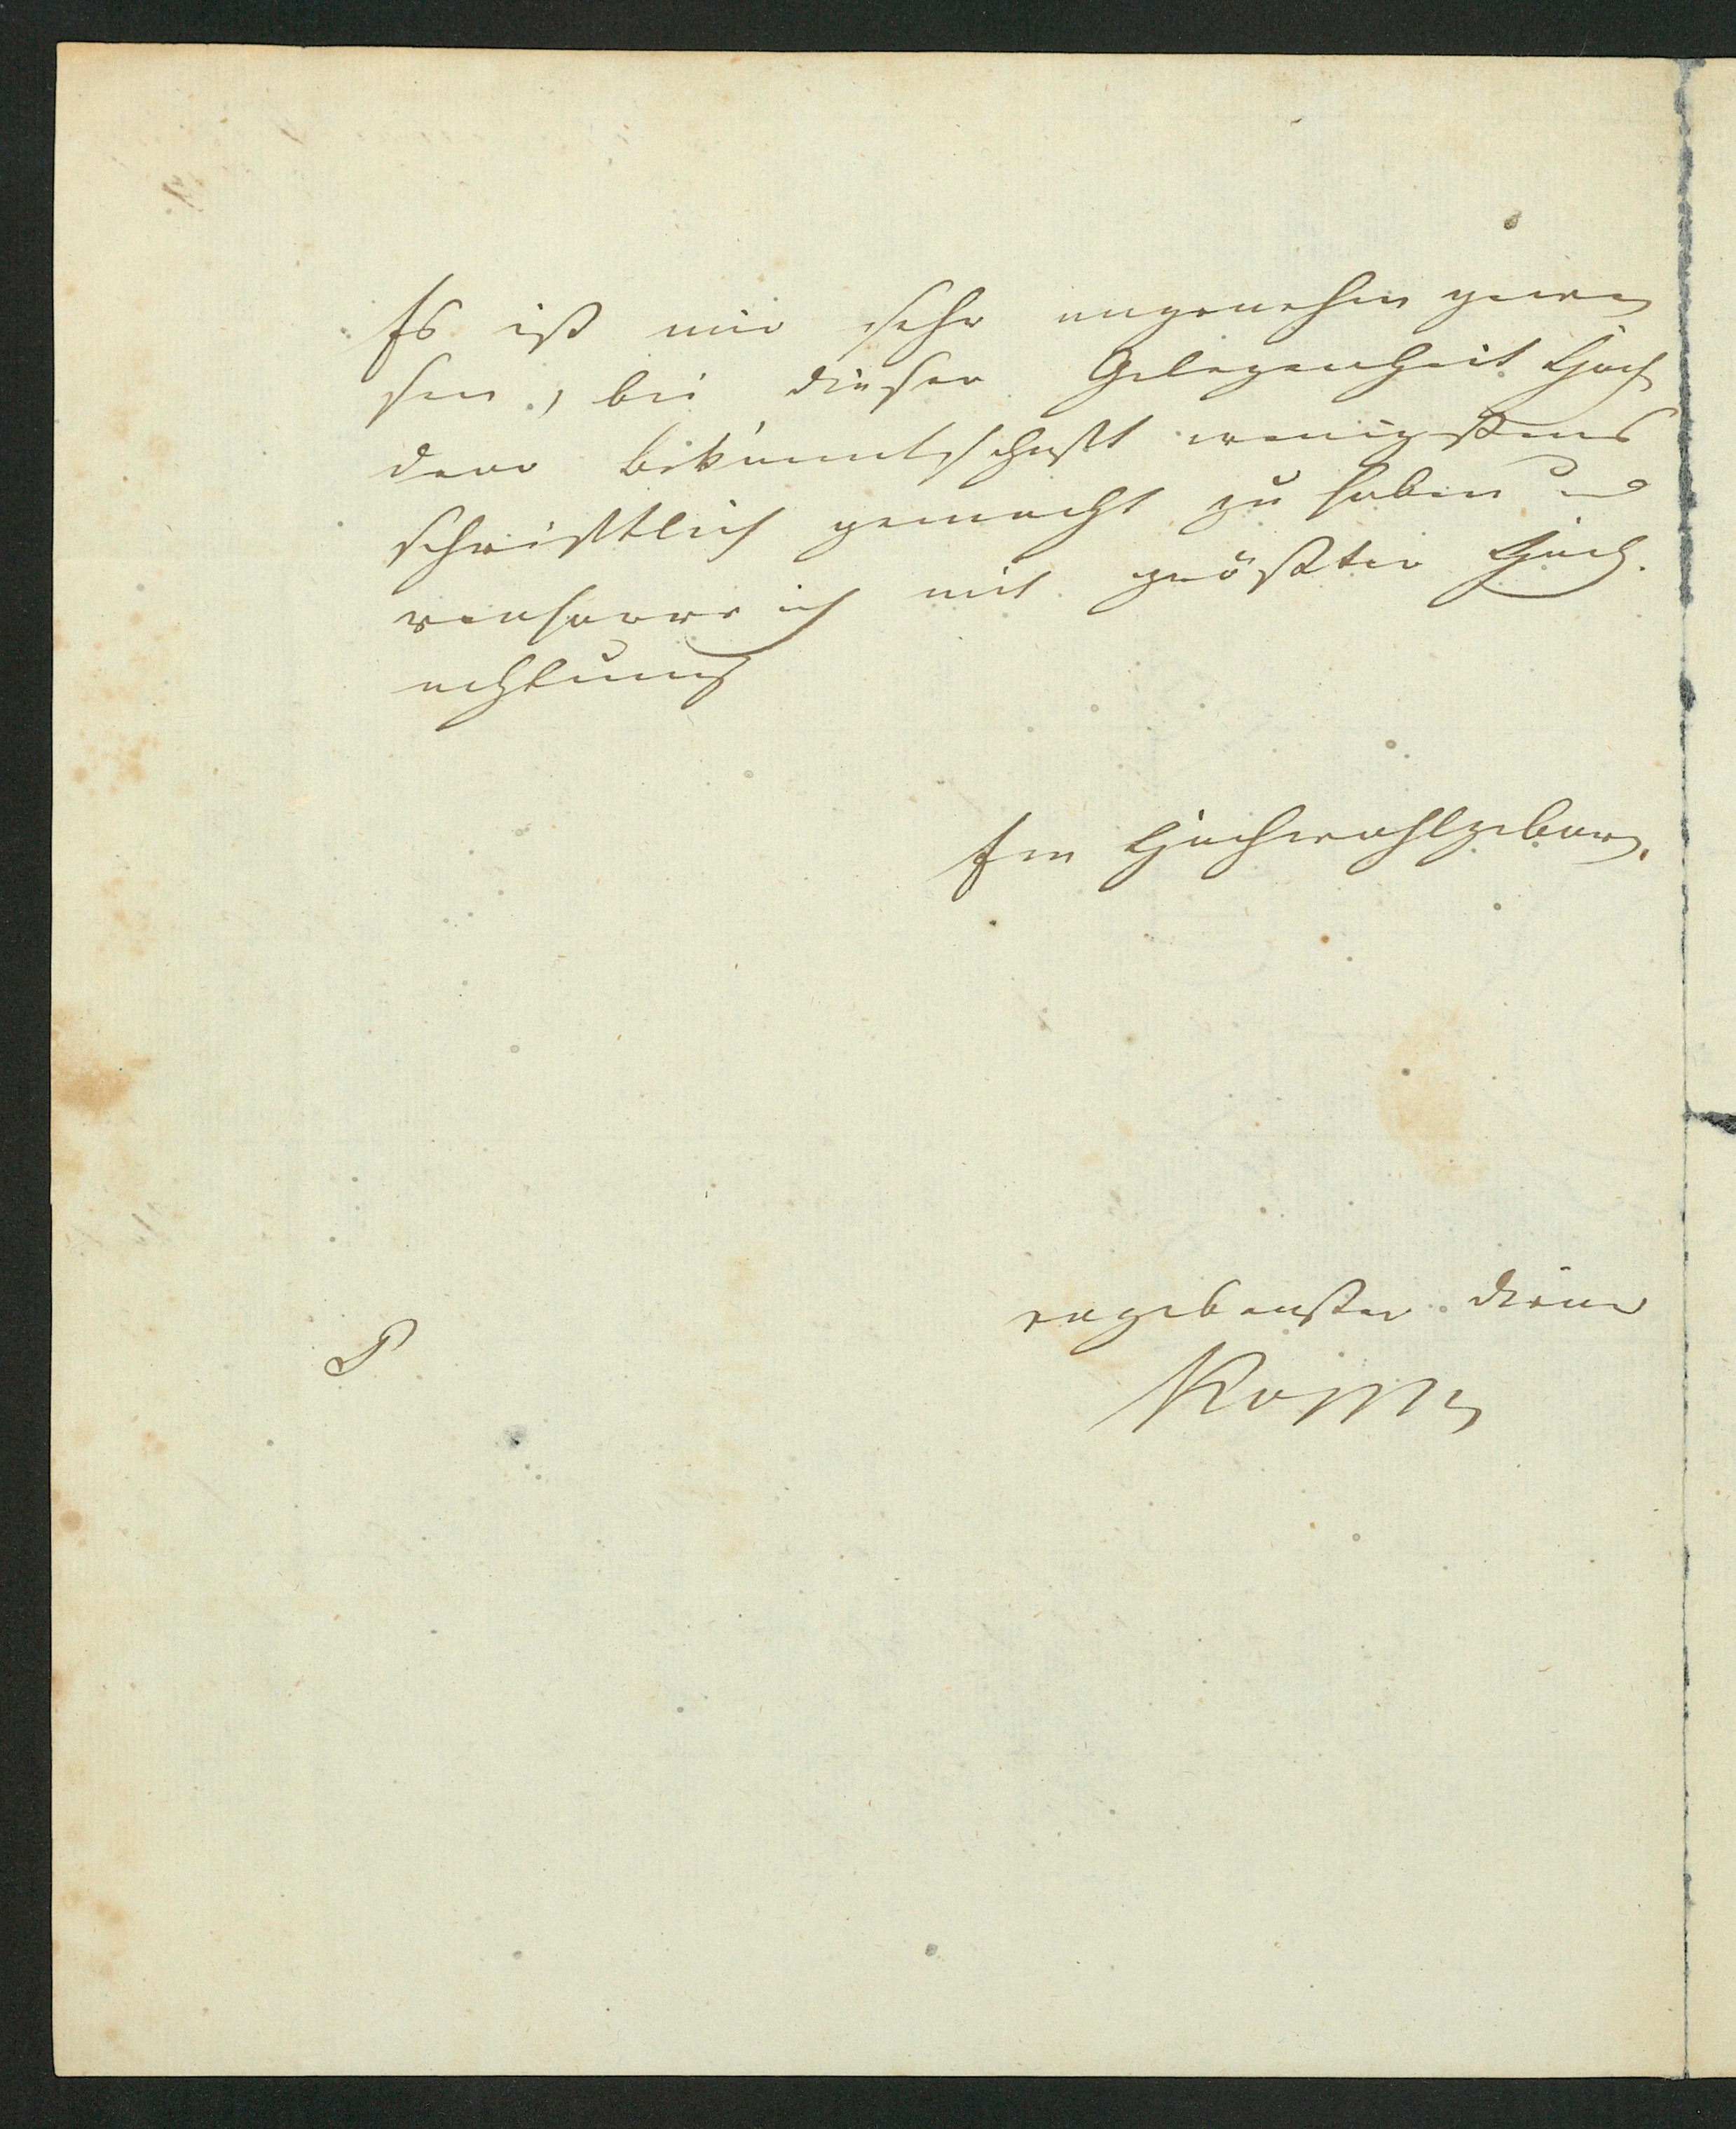 Es ist mir sehr angenehm gewe
sen, bei dieser Gelegenheit Hoch
dero bekanntschaft wenigstens
schriftlich gemacht zu haben und
verharre ich mit größter Hoch.
achtung
Ew Hochwohlgeboren.
ergebenster diener